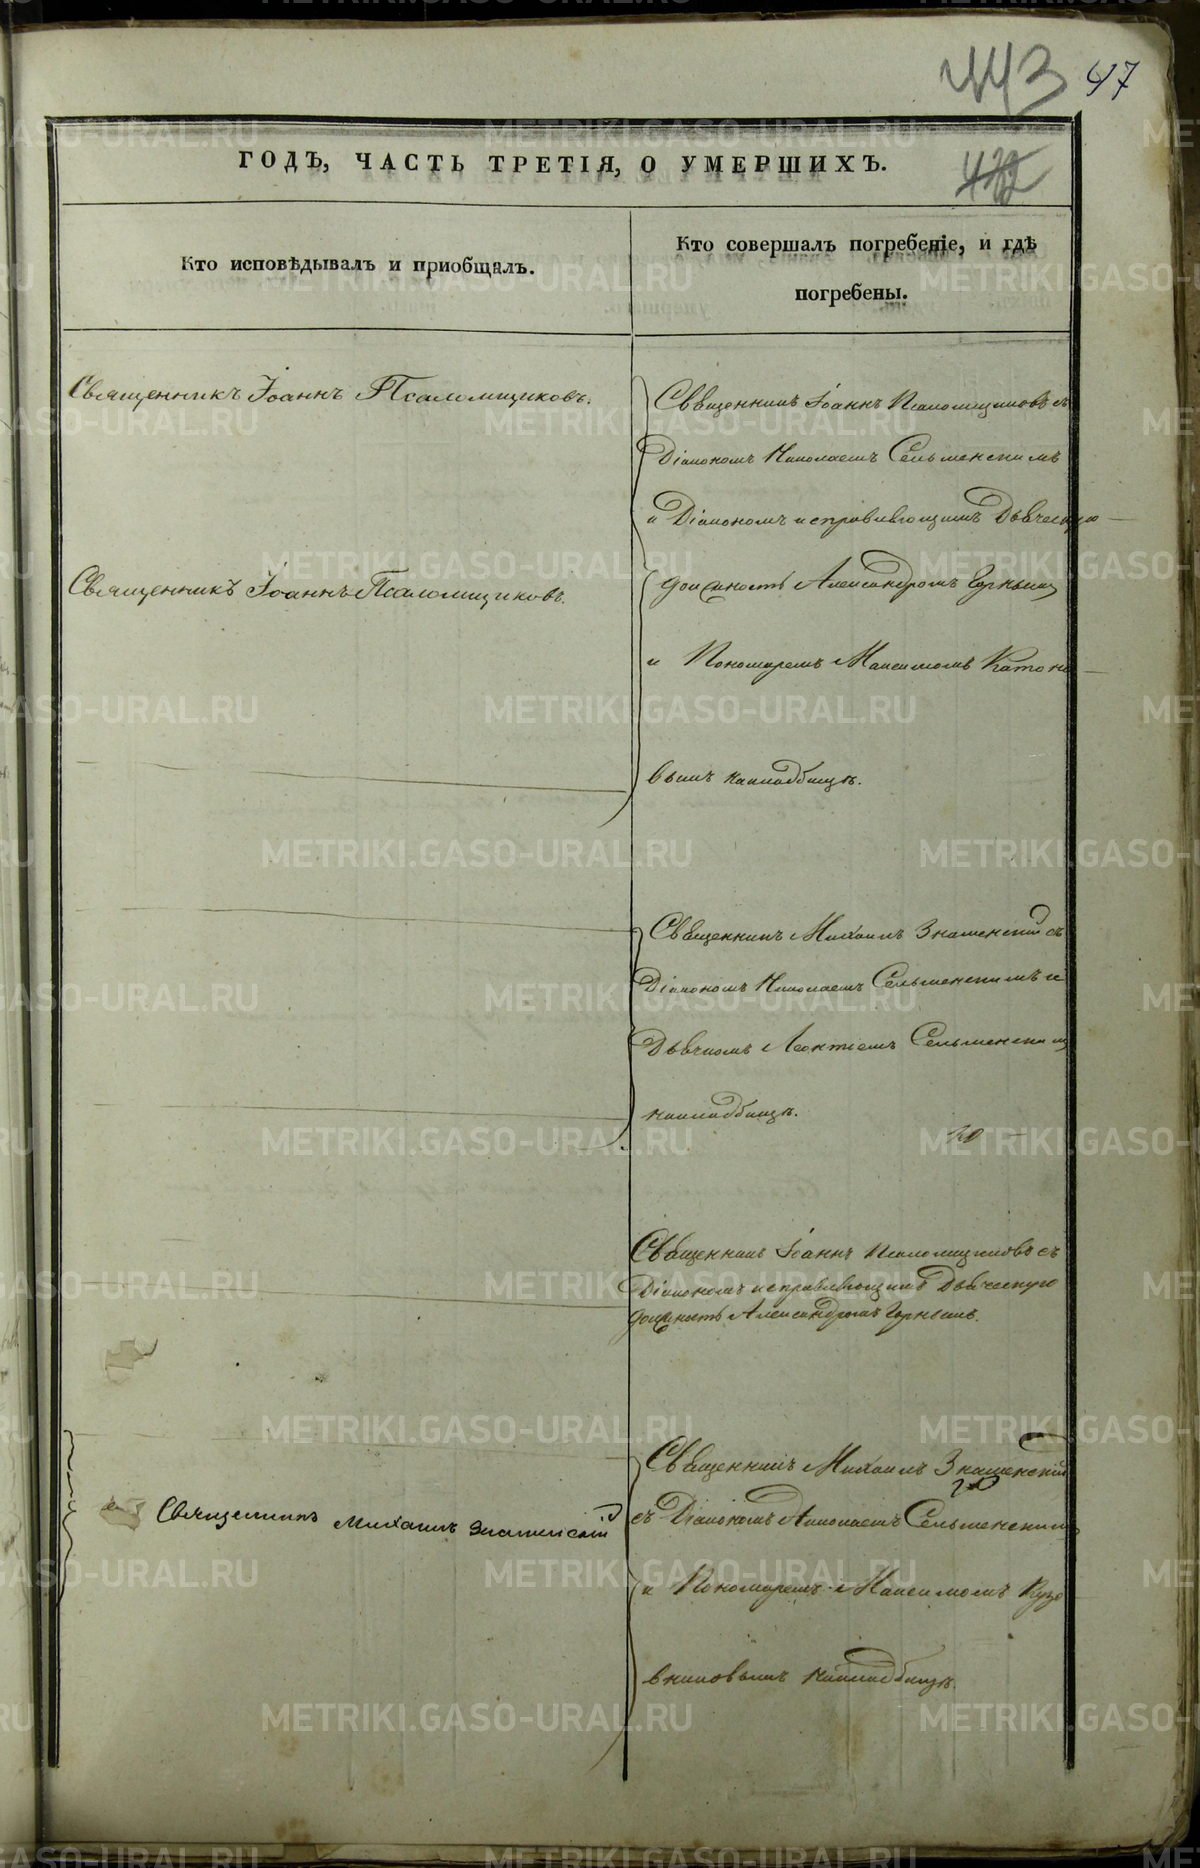 443 47
ГОДЪ, ЧАСТЬ ТРЕТІЯ, О УМЕРШИХЪ.
Кто исповѣдывалъ и пріобщалъ.
Кто совершалъ погребеніе, и гдѣ
погребены.
Священникъ Іоаннъ Псаломщиковъ.
Священникъ Іоаннъ Псаломщиковъ.
Священникъ Михаилъ Знаменскій
Священникъ Іоаннъ Псаломщиковъ съ
Діакономъ Николаемъ Сельменскимъ
и Діакономъ исправляющимъ Дьяческую
должность Александромъ Горнымъ
и Пономаремъ Максимомъ Катоно
вымъ на кладбищѣ.
Священникъ Михаилъ Знаменскій съ
Діакономъ Николаемъ Сельменскимъ и
Дьячкомъ Леонтіемъ Сельменским
на кладбищѣ.
Священникъ Іоаннъ Псаломщиковъ съ
Діакономъ исправляющимъ Дьяческую
должность Александромъ Горнымъ.
Священникъ Михаилъ Знаменскій
съ Діакономъ Николаемъ Сельменским
и Пономаремъ Максимомъ
на кладбищѣ.
METRIKI.GASO-URAL.RU